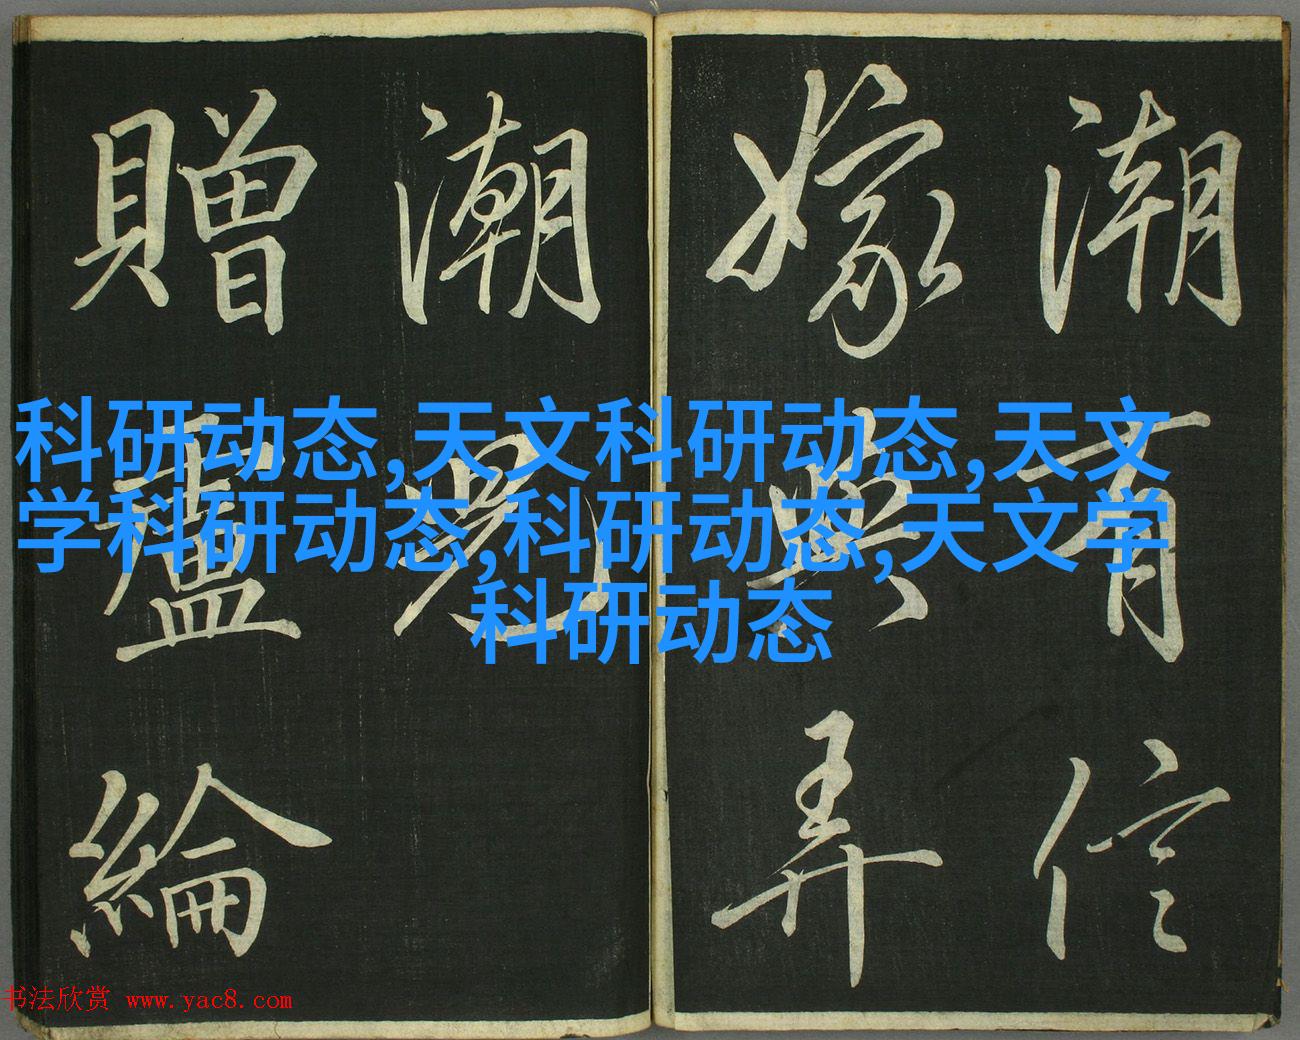 潮有信
嫁與弄
潮兒
贈盧綸
科研动态,天文科研动态,天文
学科研动态,科研动态,天文学
科研动态
书法欣赏 www.yac8.com